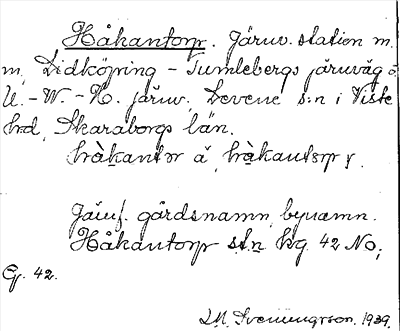 Håkantorp. Järnv. station m.
m. Lidköping - Tumlebergs järnväg o
U. - W. - H. järnv. Levene s:n i Viste
hd, Skaraborgs län.
hå̀kantɒr å̀, hå̀kantɒrp
Jämf. gårdsnamn, bynamn.
Håkantorp st:n kg 42 NO,
Cg. 42.
J.M. Svenungsson. 1939.